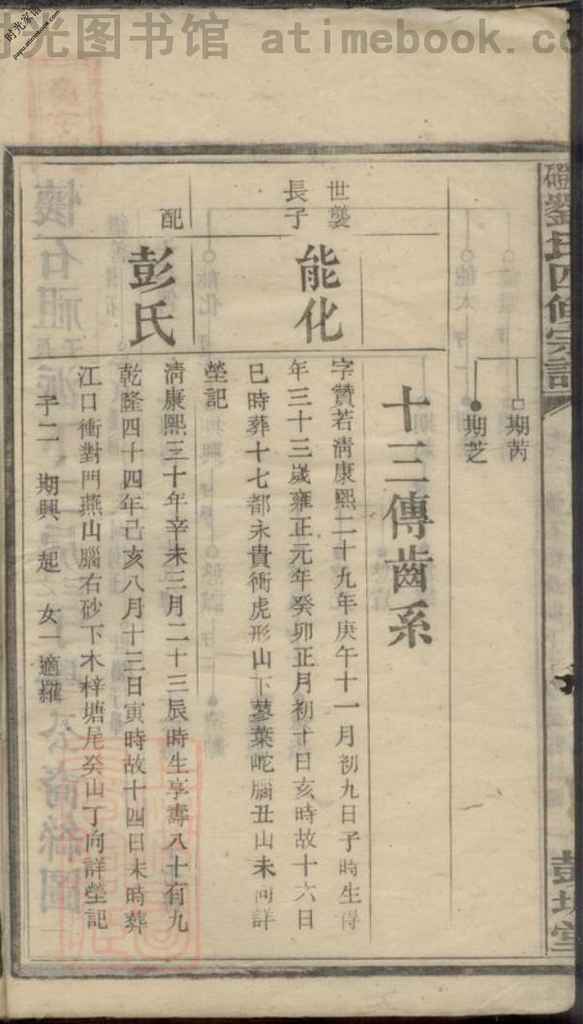 时光图书馆 atimebook.co
劉氏四修宗譜
彭城堂
期芮
期芝
十三傳齒系
世襲
長子
能化
字贊若淸康熙二十九年庚午十一月初九日子時生得
年三十三歲雍正元年癸卯正月初十日亥時故十六日
巳時葬十七都永貴衝虎形山下蓼葉嵕腦丑山未向詳
塋記
配
彭氏
淸康熙三十年辛未三月二十三辰時生享壽八十有九
乾隆四十四年己亥八月十三日寅時故十四日未時葬
江口衝對門燕山腦右砂下木梓塘尾癸山丁向詳塋記
子二 期興 起 女一適羅